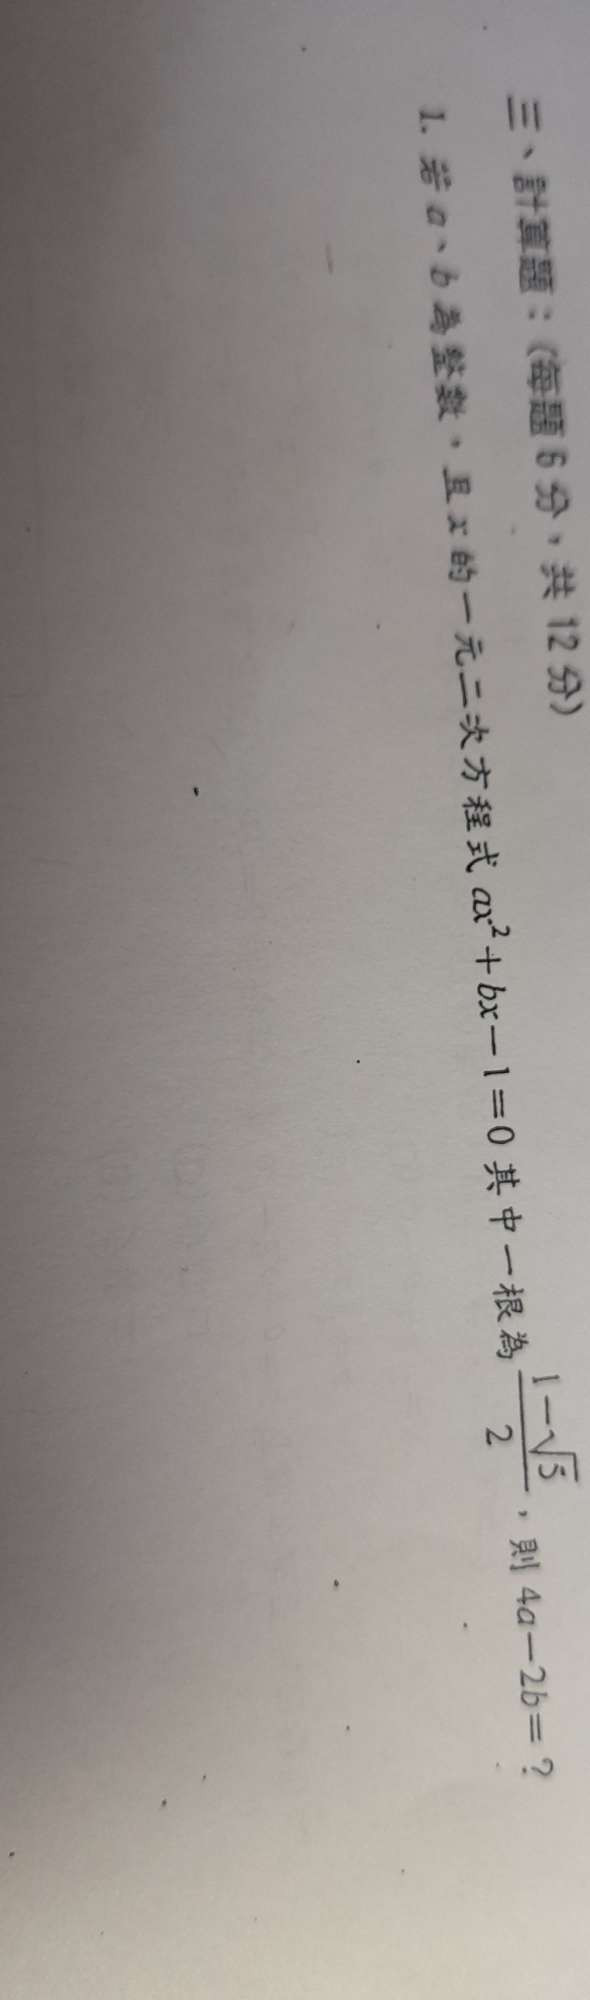 三、計算題：(每題6分，共12分)
1. 若a、b為整數，且x的一元二次方程式ax²+bx−1=0其中一根為(1−√5)/2，則4a−2b=？